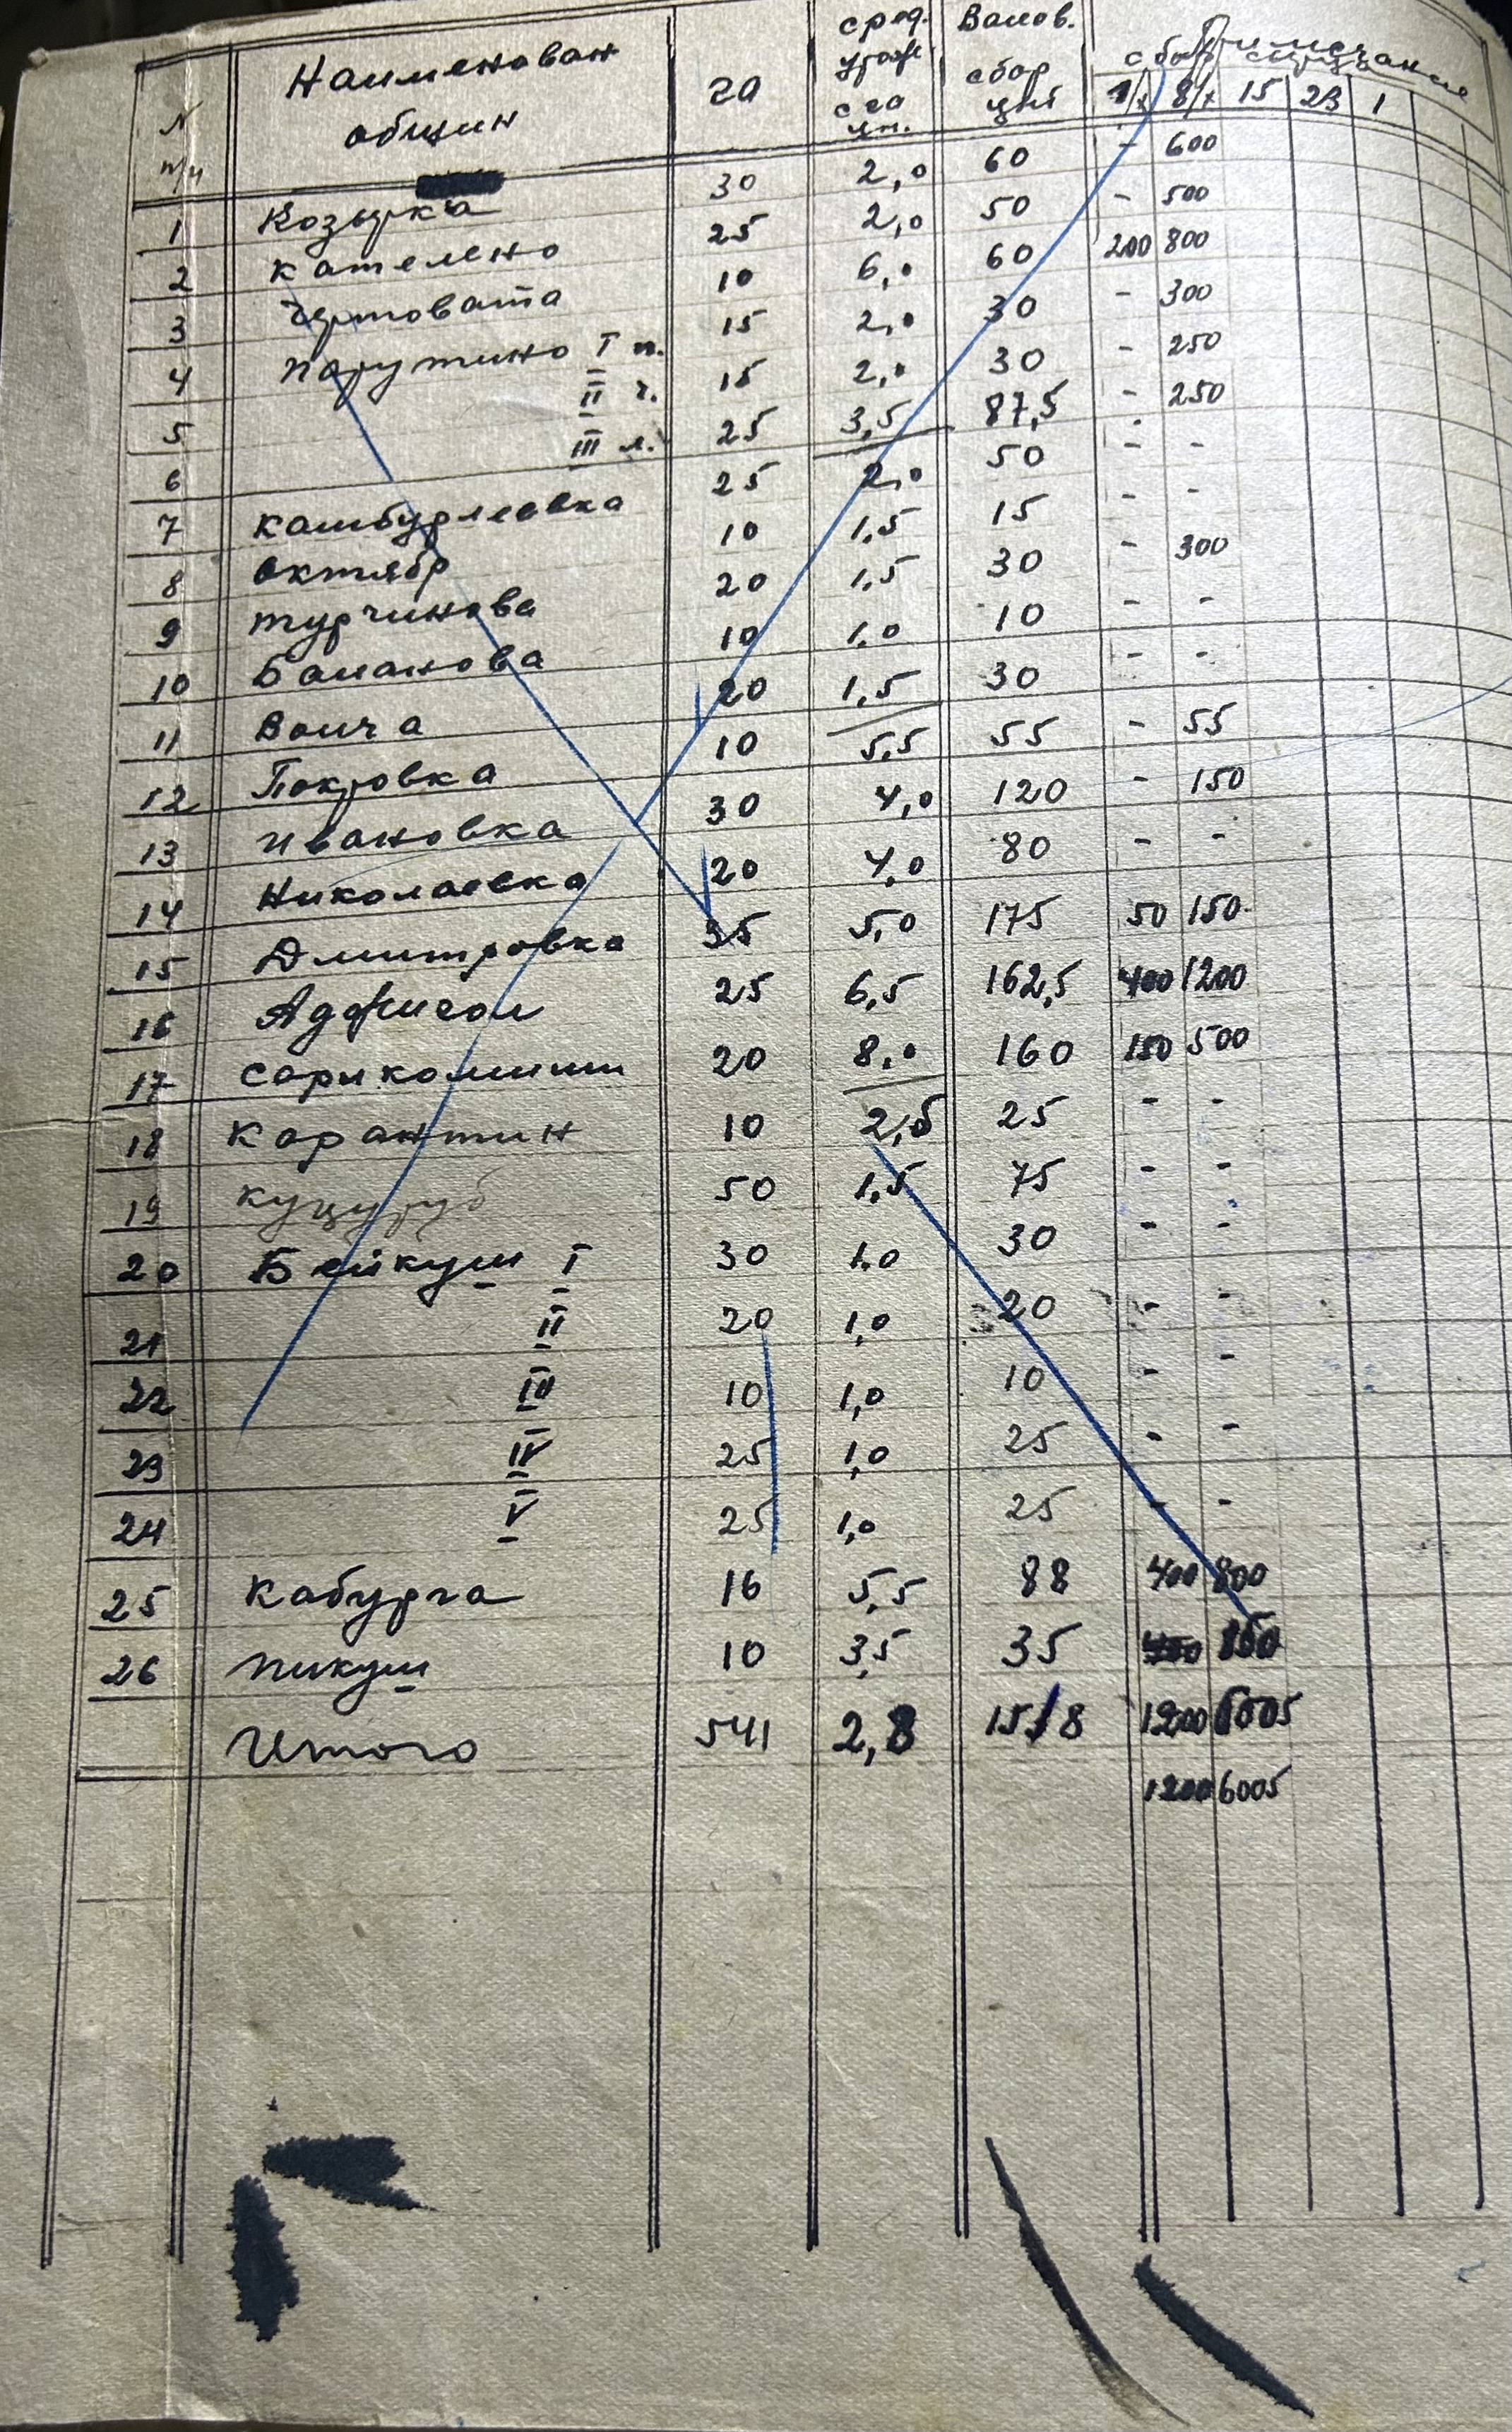 N п/ч Наименован общин га сред. урож с га цн. Валов. сбор цнт Примечание
1/х 8/х 15 23 1
1 Козырка 30 2,0 60 - 600
2 Кателено 25 2,0 50 - 500
3 Чертовата 10 6,0 60 200 800
4 Парутино I п. 15 2,0 30 - 300
5 II ч. 15 2,0 30 - 250
6 III л. 25 3,5 87,5 - 250
7 Камбурлеевка 25 2,0 50 - -
8 Октябр 10 1,5 15 - -
9 Турчинова 20 1,5 30 - 300
10 Баланова 10 1,0 10 - -
11 Волча 20 1,5 30 - -
12 Покровка 10 5,5 55 - 55
13 Ивановка 30 4,0 120 - 150
14 Николаевка 20 4,0 80 - -
15 Дмитровка 35 5,0 175 50 150
16 Аджигол 25 6,5 162,5 400 1200
17 Сарикомиши 20 8,0 160 150 500
18 Карантин 10 2,5 25 - -
19 Куцуруб 50 1,5 75 - -
20 Бейкуш I 30 1,0 30 - -
21 II 20 1,0 20 - -
22 III 10 1,0 10 - -
23 IV 25 1,0 25 - -
24 V 25 1,0 25 - -
25 Кабурга 16 5,5 88 400 800
26 Пикуш 10 3,5 35 850
Итого 541 2,8 1518 1200 6005
1200 6005